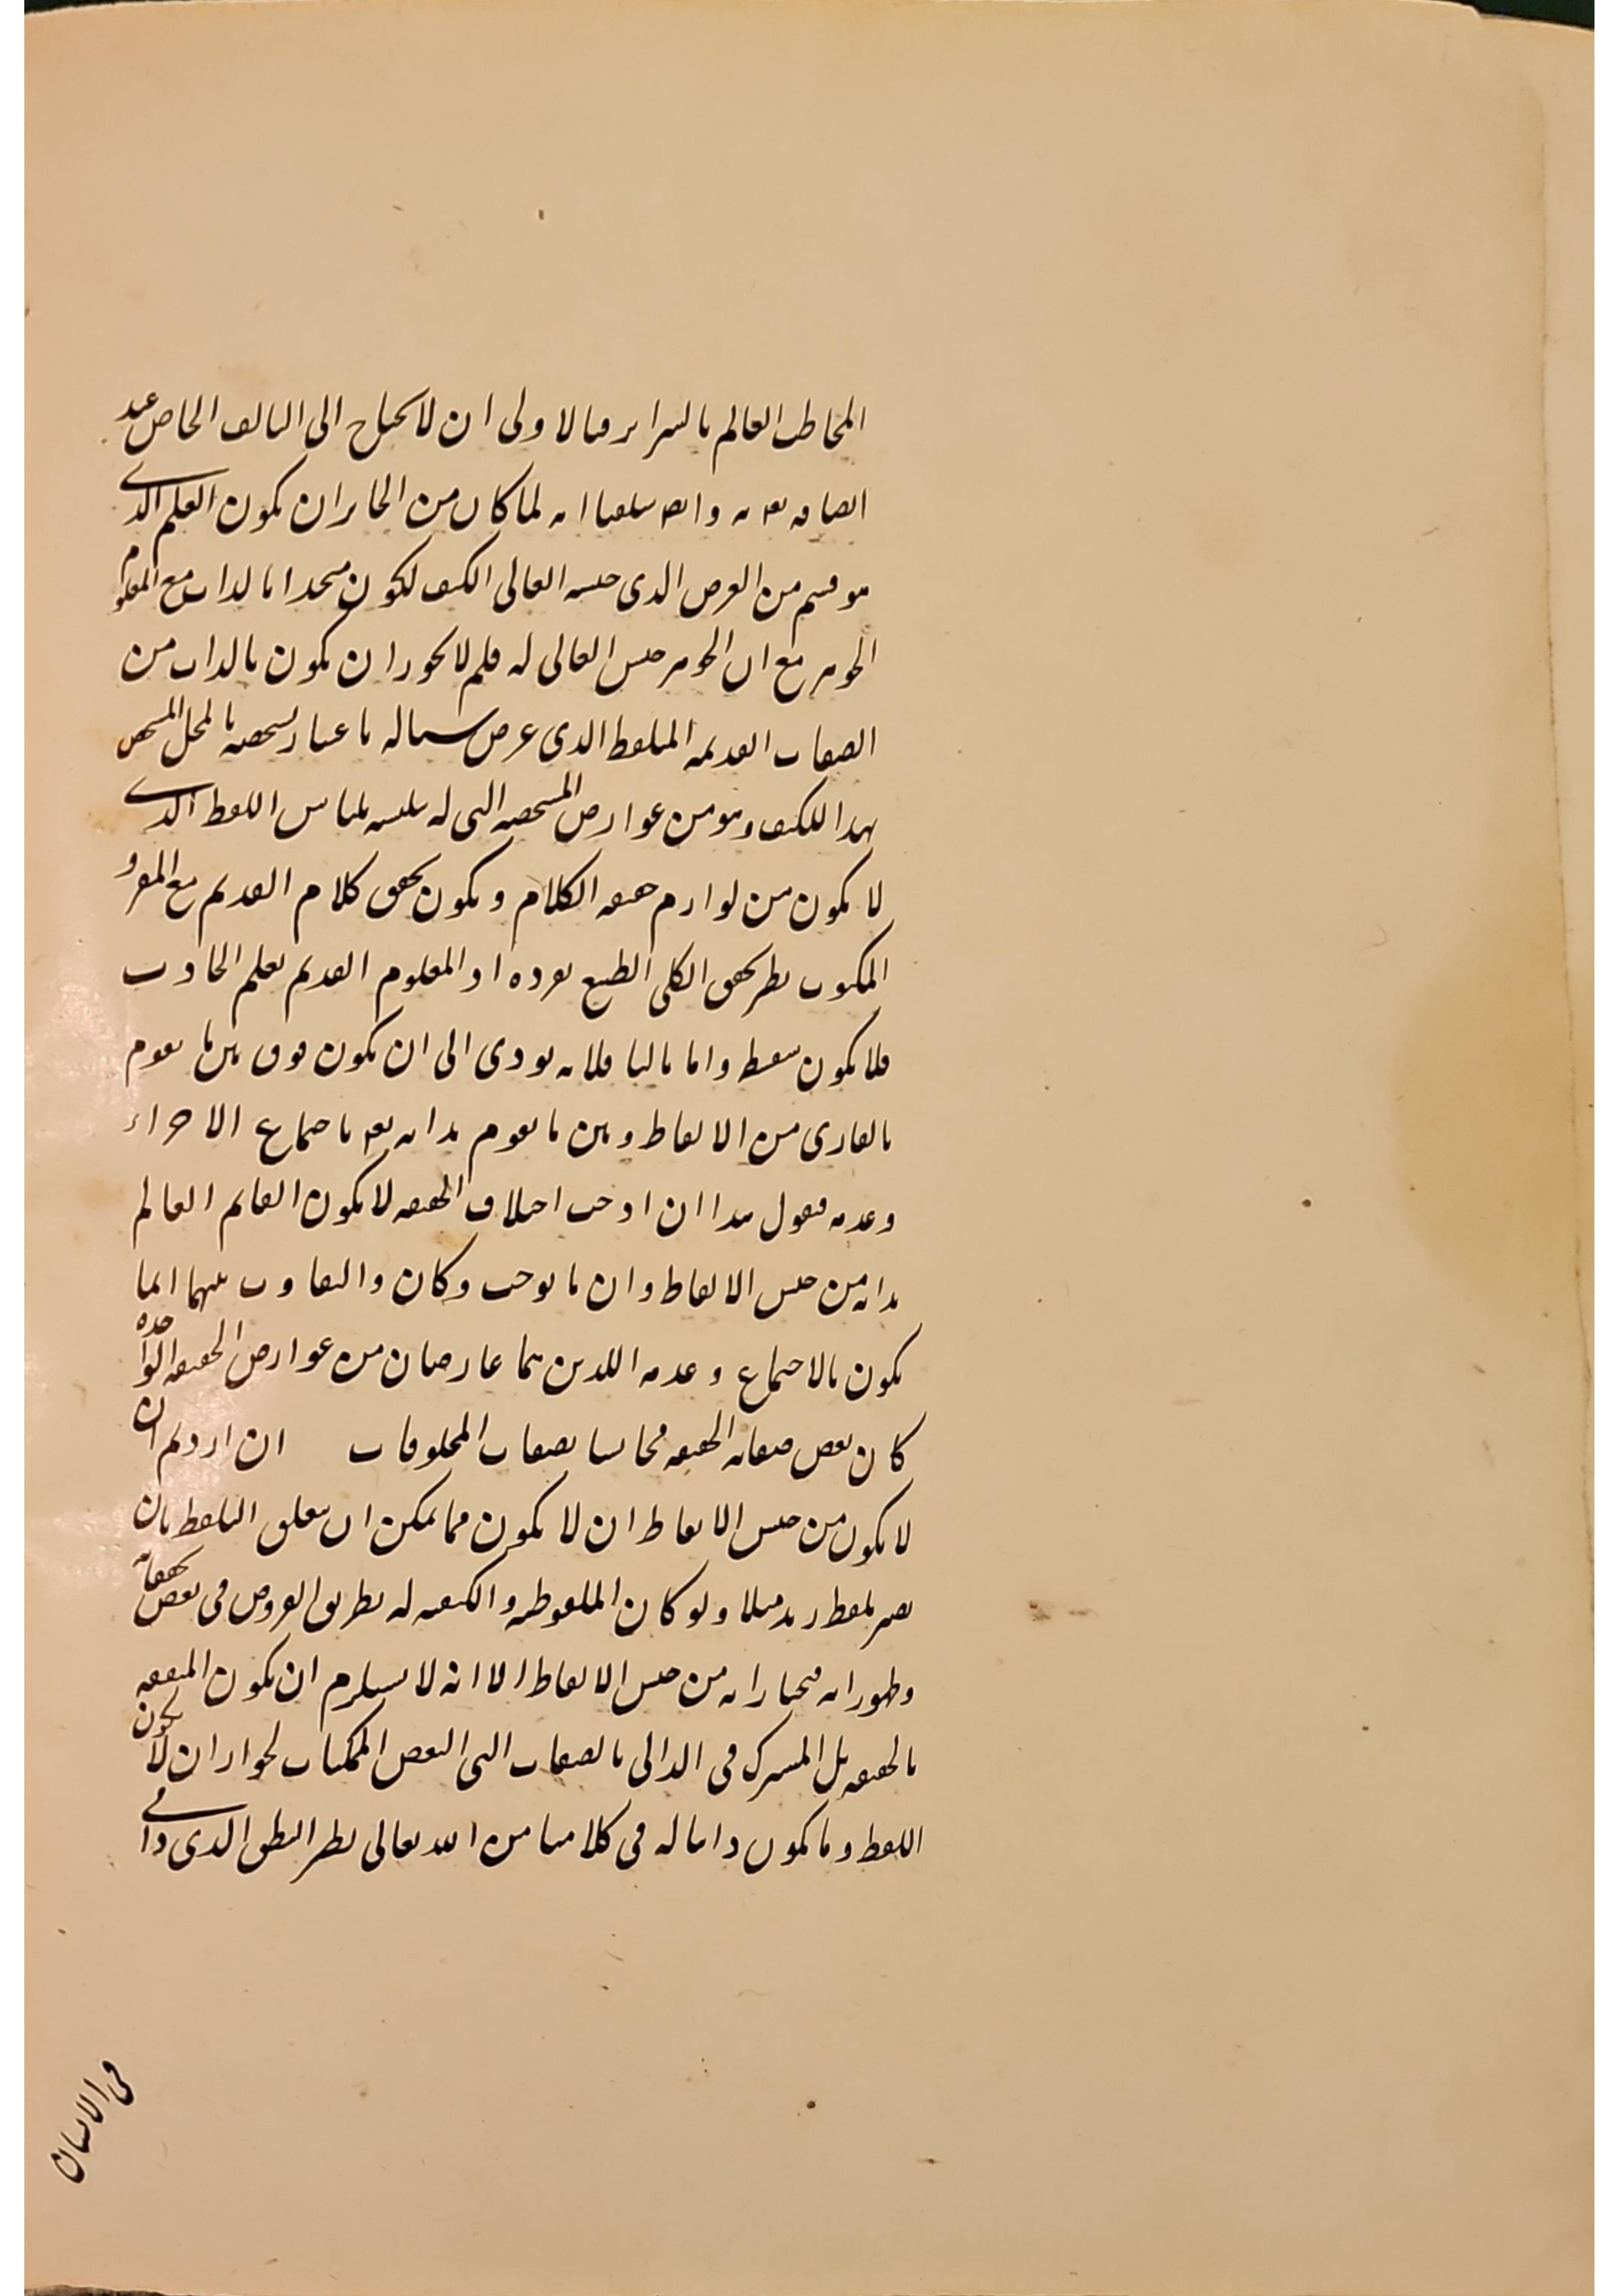 المخاطب العالم بالسرائر فبالاولى ان لا يحتاج الى التالف الخاص عند
اتصافه تعه به وايض سلمنا انه لما كان من الجائز ان يكون العلم الذى
هو قسم من العرض الذى جنسه العالى الكيف لكون متحدا بالذات مع المعلوم
الجوهر مع ان الجوهر جنس العالى له فلم لا يجوز ان يكون بالذات من
الصفات القديمة المتلفظ الذى عرض باعتبار تشخصه بالمحل المشخص
بهذا للكيف وهو من عوارض المشخصة التى له بلباس اللفظ الذى
لا يكون من لوازم حقيقة الكلام ويكون تحقق كلام القديم مع المقرو
المكتوب نظير تحقق الكلى الطبيع بفرده او المعلوم القديم بعلم الحادث
فلا يكون سفسطة واما ثالثا فلانه يودى الى ان يكون فرق بين ما يقوم
بالقارى من الالفاظ وبين ما يقوم بذاته تعه باجتماع الاجزاء
وعدمه فنقول هذا ان اوجب اختلاف الحقيقة لا يكون القائم العالم
بذاته من جنس الالفاظ وان ما يوجب وكان والتفاوت بينهما انما
يكون بالاجتماع وعدمه اللذين هما عارضان من عوارض الحقيقة الواحده
كان بعض صفاته الحقيقة مجانسا بصفات المخلوقات ان اردتم ان
لا يكون من جنس الالفاظ ان لا يكون مما يمكن ان يتعلق التلفظ بان
يصير بلفظ زيد مثلا ولو كان الملفوظية والكيفية له بطريق العروض فى بعض تحققاته
وظهوراته فنختار انه من جنس الالفاظ الا انه لا يستلزم ان يكون المتفقه
بالحقيقة بل المشترك فى الذاتى بالصفات التى لبعض الممكنات لجواز ان لا يكون
اللفظ وما يكون ذاتيا له فى كلامنا من الله تعالى نظير النطق الذى ذاتى
فى الانسان